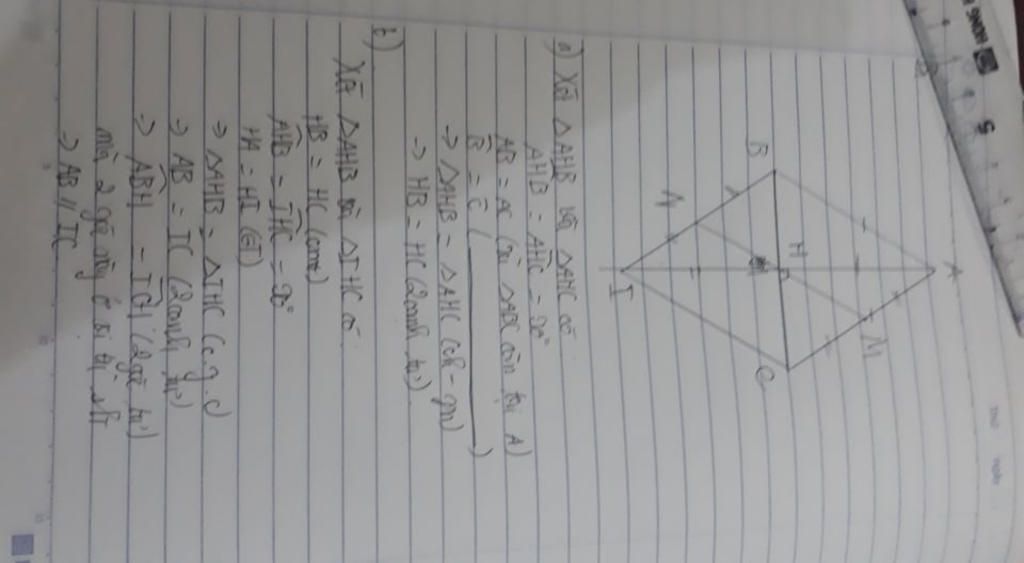 HONG
5
A
M
C
H
B
N
I
a) Xét △AHB và △AHC có
AHB = AHC = 90°
AB = AC (vì △ABC cân tại A)
B = C (
)
=> △AHB = △AHC (ch-gn)
=> HB = HC (2 cạnh tư')
b)
Xét △AHB và △IHC có
HB = HC (cmt)
AHB = IHC = 90°
HA = HI (gt)
=> △AHB = △IHC (c.g.c)
=> AB = IC (2 cạnh tư')
=> ABH = ICH (2 góc tư')
mà 2 góc này ở vị trí slt
=> AB // IC